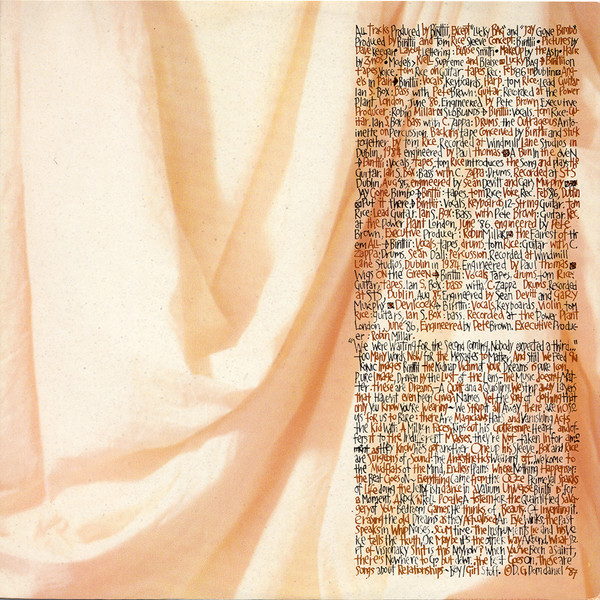 All Tracks Produced by Binttii, Except "Lucky Bag" and "Jay Gone Bimbo"
Produced by Binttii and Tom Rice. Sleeve Concept: Binttii. Pictures by
Dave Keegan. Layout, Lettering: Blaise Smith. MakeUp by the Astr. Haire
by Zymos. Models Nell Supreme and Blaise. Lucky Bag Binttii on
tapes, Voice, tom Rice on guitar, tapes Rec. Feb 86 in Dublin. Ang-
els in Pain Binttii: Vocals, Keyboards, Harp. tom Rice: Lead Guitar
Ian S. Box: Bass with Pete Brown: Guitar. Recorded at the Power
Plant, London, June '86. Engineered by Pete Brown. Executive
Producer: Robin Millar. Binttii: Vocals. tom Rice: Gu-
itar, Ian S. Box: Bass with C. Zappa: Drums, the Outrageous Anto-
inette on Percussion, Backing tape Conceived by Binttii and stuck
together by tom Rice. Recorded at Windmill Lane Studios in
Dublin, 1984, engineered by Paul Thomas. A Bun In the Oven
Binttii: Vocals, tapes, tom Rice introduces the Song and plays the
Guitar, Ian S. Box: Bass with C. Zappa: Drums. Recorded at STS
Dublin, Aug 85, engineered by Sean Devitt and Gary Murphy. J-
ay Gone Bimbo Binttii: tapes, tom Rice: Voice, Rec. Feb 86, Dublin
Put It there Binttii: Vocals, Keyboards, 12-String Guitar, Tom
Rice: Lead Guitar, Ian S. Box: Bass with Pete Brown: Guitar, Rec.
at the Power Plant London, June '86, engineered by Pete
Brown. Executive Producer: Robin Millar. the Fairest of th-
em All Binttii: Vocals, tapes, drums, tom Rice: Guitar with C.
Zappa: Drums, Sean Dall: Percussion. Recorded at Windmill
Lane Studios, Dublin in 1984. Engineered by Paul Thomas.
Wigs on the Green Binttii: Vocals, Tapes, drums, tom Rice:
Guitar, tapes, Ian S. Box: bass with C. Zappa Drums. Recorded
at STS, Dublin, Aug 85. Engineered by Sean Devitt and Gary
Murphy. Devilcock Binttii: Vocals, Keyboards, Violin, tom
Rice: guitars, Ian S. Box: bass. Recorded at the Power Plant
London, June '86, Engineered by Pete Brown. Executive Produc-
er: Robin Millar.
"We were Waiting for the Second Coming, Nobody expected a third..."
too Many Words Now for the Messages to Matter, And still We Feed on
Ionic Images. Binttii the Kidnap Victim of Your Dreams of Pure Icon,
Pure Image, Driven by the Lust of the Lens. The Music doesn't Mat-
ter. these are Dreams. A Quilt and a Quilting. We strip away Layers
that Haven't even been Given Names. Yet the sort of clothing that
only you know You're Wearing. We strip it all Away. there are those
us for us to Rice: there Are Magicians Hat and Vanishing Acts.
the Kid With A Million Faces Rips out his Guttersnipe Heart, and of-
fers it to the Indifferent Masses. they're Not taken in for a mo-
ment as they know he's got another One up his Sleeve. Box and Rice
are Surgeons of Sound. the Anaesthetic's Wearing off. Welcome to
the Mudflats of the Mind, Endless Plains Where Nothing Happens or:
the Real Goes on. Everything Came from the Ooze Primeval Sparks
of Life doing the Jellyfish dance in a Valium Universe. Binttii is, for
a Moment, A Rock N Roll Poof, A totem for the Quantified Sava-
gery of Your Bedroom Games. He thinks of Beauty, Of Inventing it,
Erasing the old Dreams as they Actualise. An Eye winks; the Past
Speaks in Whip Noises. Scum time. the Instruments lie and the Vo-
ice tells the Truth, Or Maybe it's the other Way Around. What so-
rt of Visionary Shit is this Anyhow? When you've Been a Saint,
there's Nowhere to Go but down. the List Goes On. these are
Songs about Relationships - Boy/Girl Stuff. © D.G. Domdaniel '87